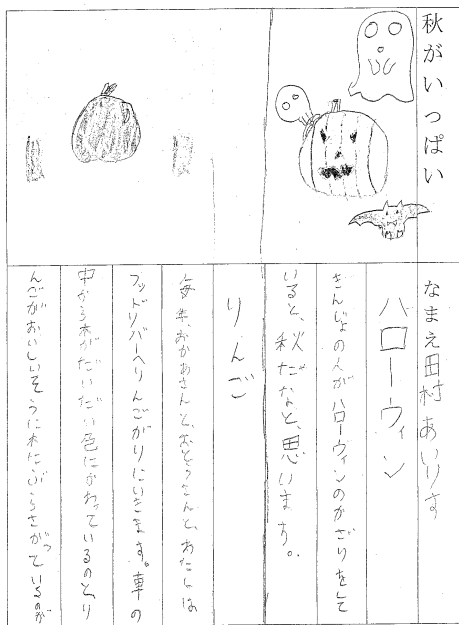 秋がいっぱい
なまえ田村あいりす
ハローウィン
きんじょの人がハローウィンのかざりをして
いると、秋だなと、思います。
りんご
毎年、おかあさんと、おとうさんと、あたしは
フッドリバーへりんごがりにいきます。車の
中から木がだいだい色にかわっているのとり
んごがおいしいそうに木にぶらさがっているのが